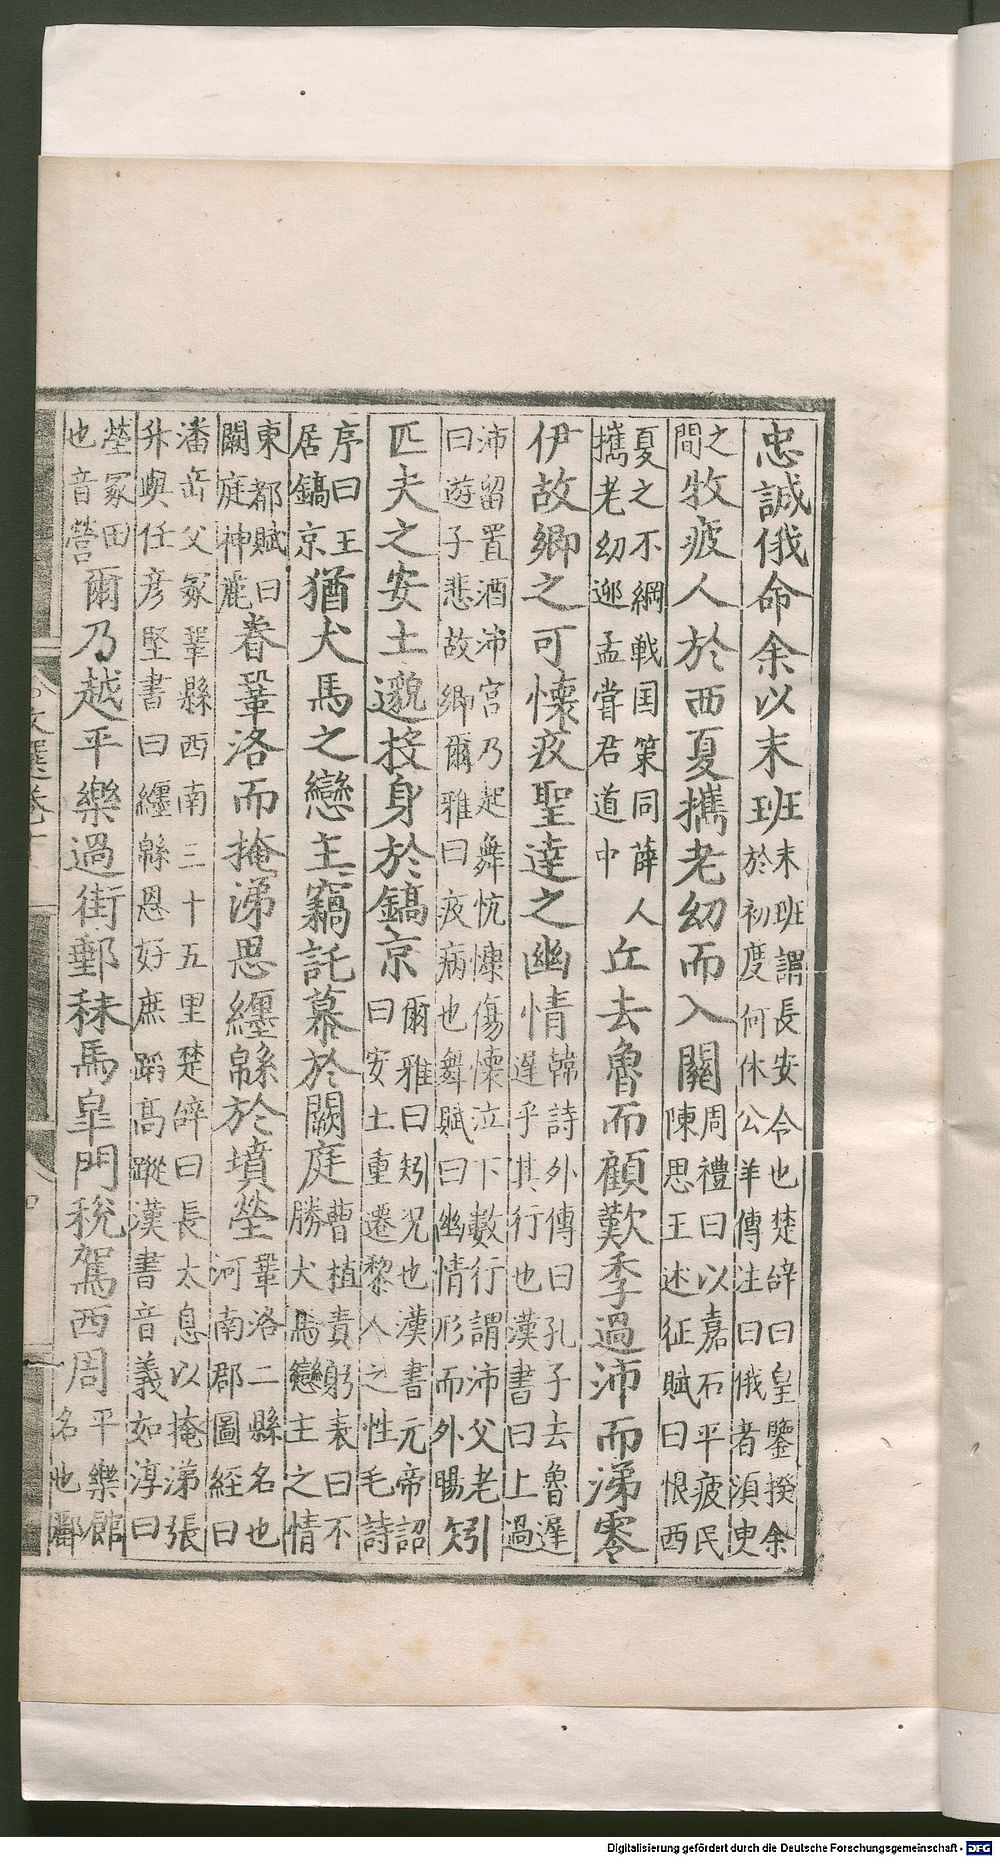 忠誠俄命余以末班末班謂長安令也楚辭曰皇鑒揆余於初度何休公羊傳注曰俄者須臾
之間牧疲人於西夏攜老幼而入關周禮曰以嘉石平疲民陳思王述征賦曰恨西
夏之不綱戰国策同薛人攜老幼迎孟嘗君道中丘去魯而顧歎季過沛而涕零
伊故鄉之可懷疚聖達之幽情韓詩外傳曰孔子去魯遲遲乎其行也漢書曰上過
沛留置酒沛宮乃起舞忼慷傷懷泣下數行謂沛父老曰遊子悲故鄉爾雅曰疚病也舞賦曰幽情形而外暢矧
匹夫之安土邈投身於鎬京爾雅曰矧况也漢書元帝詔曰安土重遷黎人之性毛詩
序曰王居鎬京猶犬馬之戀主竊託慕於闕庭曹植責躬表曰不勝犬馬戀主之情
東都賦曰闕庭神麗眷鞏洛而掩涕思纏緜於墳塋鞏洛二縣名也河南郡圖経曰
潘岳父冢鞏縣西南三十五里楚辭曰長太息以掩涕張升與任彦堅書曰纏緜恩好庶蹈高蹤漢書音義如淳曰
塋冢田也音營爾乃越平樂過街郵秣馬皐門稅駕西周平樂館名也酈
文選卷十
Digitalisierung gefördert durch die Deutsche Forschungsgemeinschaft - DFG